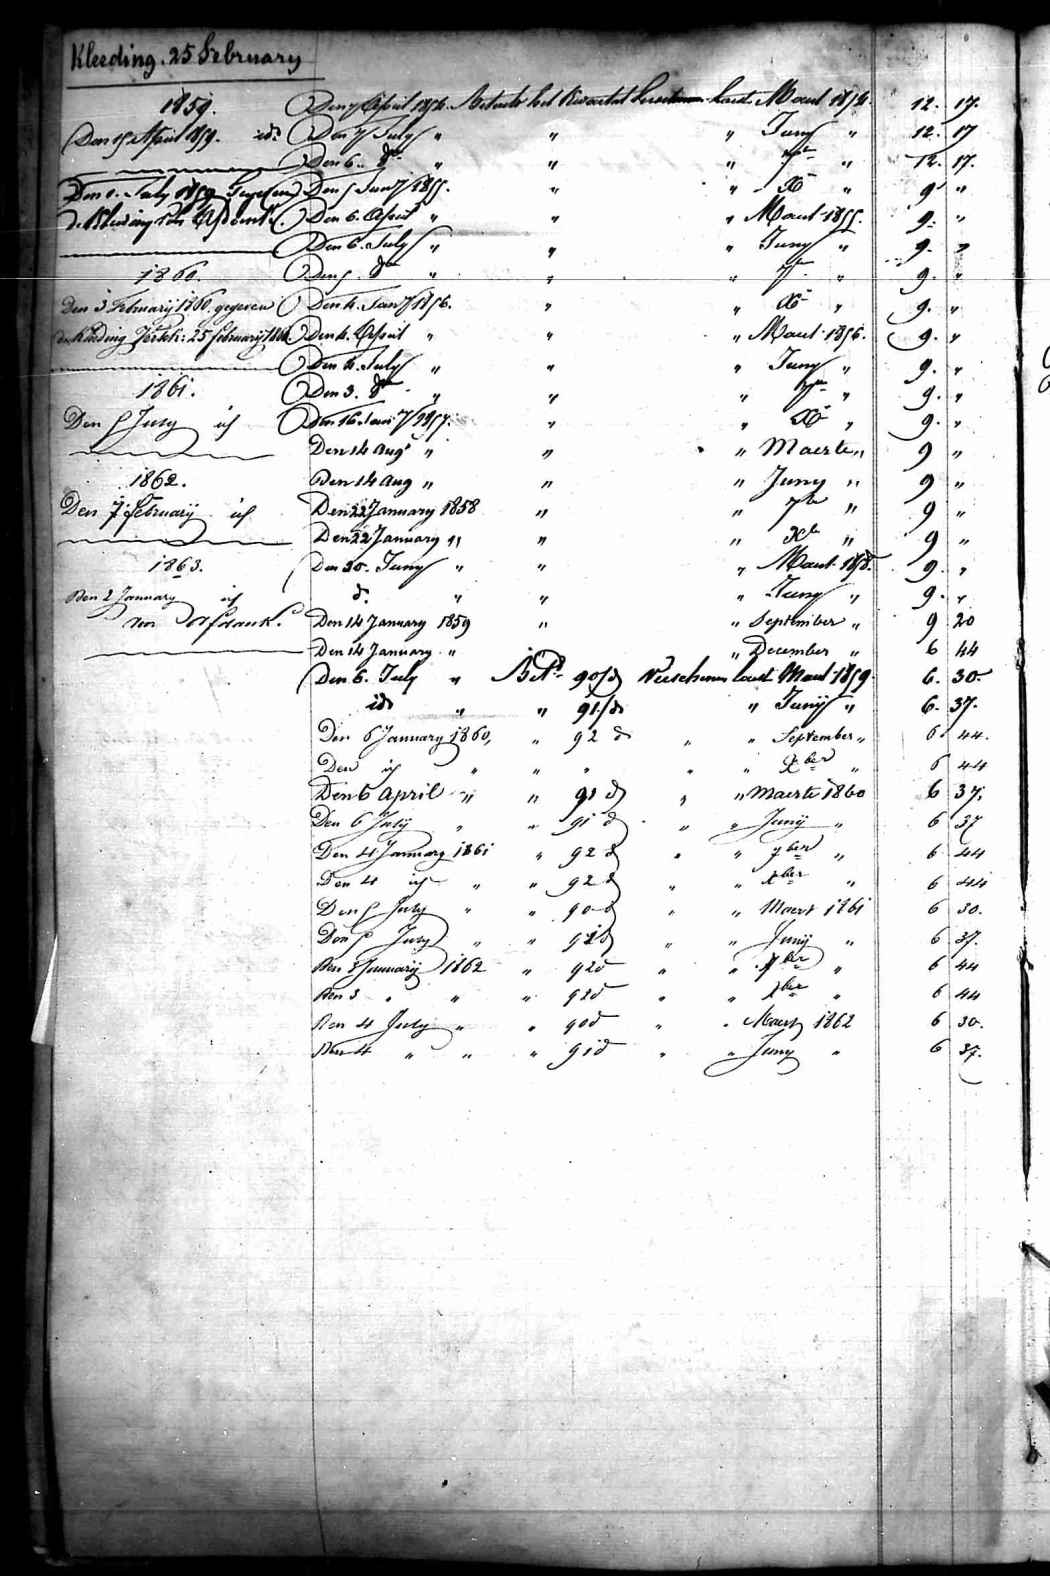 Kleeding. 25 February
1859. Den 7 April 1854. Betaelt het Kwartael laest Maart 1854. 12. 17.
Den 5 April 1859. id: Den 7 July " " " Juny " 12. 17
Den 6. dr " " " 7br " 12. 17.
Den 1. July 1859 Gegeven Den 5 Jany 1855. " " Xr " 9 "
Den 6. April " " " Maart 1855. 9. "
Den 6. July " " " Juny " 9. "
1860. Den 5. dr " " 7br " 9. "
Den 3 February 1860. gegeven Den 4. Jany 1856. " " Xr " 9. "
de Kleeding Verstr: 25 february 1860. Den 4. April " " " Maart 1856. 9. "
Den 4. July " " " Juny " 9. "
1861. Den 3. dr " " " 7br " 9. "
Den 5 July id Den 16 Jany 1857. " " Xr " 9. "
Den 14 Augt " " " Maerte " 9 "
1862. Den 14 Aug " " " Juny " 9 "
Den 7 february id Den 22 January 1858 " " 7br " 9 "
Den 22 January " " " Xbr " 9 "
1863. Den 30. Juny " " " Maart 1858. 9. "
Den 2 January id d. " " " Juny " 9. "
Den 14 January 1859 " " September " 9 20
Den 14 January " " December " 6 44
Den 6. July " Bet. 90/d Verschenen laest Maart 1859. 6. 30.
id " " 91/d " Junij " 6. 37.
Den 6 January 1860, " 92 d " " September " 6 44.
Den id " " " " " Xber " 6 44
Den 6 April " " 91 d " " Maerte 1860 6 37.
Den 6 July " " 91 d " " Junij " 6 37
Den 4 January 1861 " 92 d " " 7ber " 6 44
Den 4 id " " 92 d " " Xber " 6 44
Den 5 July " " 90 d " " Maert 1861 6 30.
Den 5 July " " 91 d " " Junij " 6 37.
Den 3 Januarij 1862 " 92 d " " 7ber " 6 44
Den 3 " " " 92 d " " Xber " 6 44
Den 4 July " " 90 d " " Maert 1862 6 30.
Den 4 " " " 91 d " " Juny " 6 37.